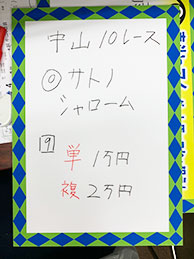 中山10レース
◎サトノ
シャローム
9
単 1万円
複 2万円